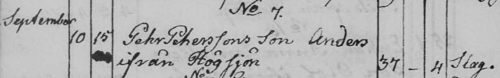 No 7.
September
10 15 Pehr Peherssons son Anders
ifrån Högsjön 37 - 4 Slag.